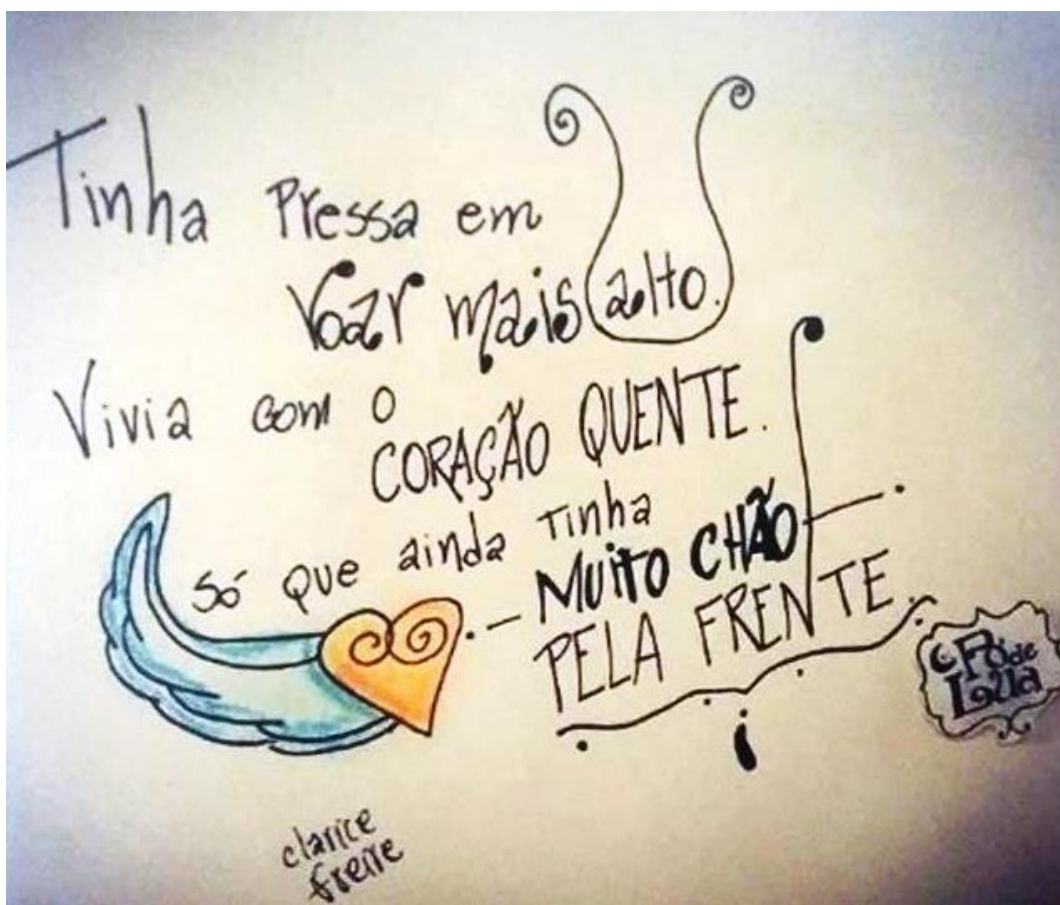 Tinha Pressa em
Voar mais alto.
Vivia com o
CORAÇÃO QUENTE.
Só que ainda tinha
MUITO CHÃO
PELA FRENTE.
Pó de
Lua
clarice
freire